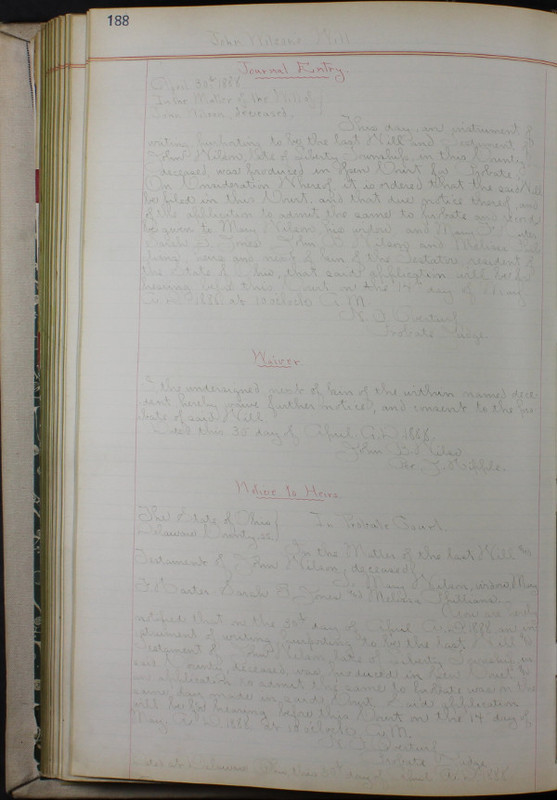 188
John Nelson's Will
Journal Entry.
April 30th 1888
In the Matter of the Will of
John Nelson, deceased.
This day an instrument of
writing, purporting to be the last Will and Testament of
John Nelson, late of Liberty Township, in this County
deceased was produced in open Court for Probate
On Consideration Whereof, it is ordered that the said Will
be filed in this Court, and that due notice thereof, and
of the application to admit the same to probate and record
be given to Mary Nelson, his widow and Mary F.
Sarah E. Jones John W. Nilson and Melissa
heirs and next of kin of the Testator resident of
the State of Ohio, that said application will be for
hearing before this Court on the 14th day of May
A.D. 1888 at 10 oclock A.M.
Probate Judge
Waiver
the undersigned next of kin of the within named dece-
dent hereby waive further notice, and consent to the pro-
bate of said Will
Dated this 30 day of April A.D. 1888.
John
Notice to Heirs.
The State of Ohio
Delaware County, ss.
In Probate Court.
In the Matter of the last Will &
Testament of John Nelson, deceased
To Mary Nelson, widow, Mary
F. Carter Sarah E. Jones & Melissa
You are hereby
notified that on the 30th day of April A.D. 1888 an in-
strument of writing, purporting to be the last Will &
Testament of John Nelson, late of Liberty Township in
said County, deceased, was produced in open Court &
an application to admit the same to probate was on the
same day made in said Court. Said application
will be for hearing before this Court on the 14 day of
May A.D. 1888 at 10 oclock A.M.
Probate Judge
Dated at Delaware Ohio this 30th day of April A.D. 1888